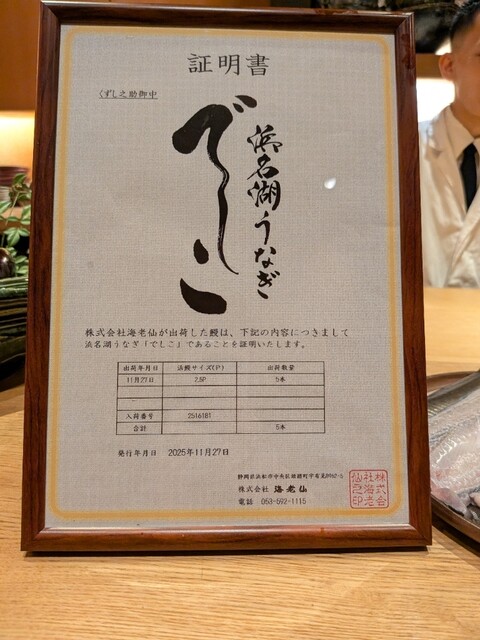 証明書
くずし之助御中
浜名湖うなぎ
でしこ
株式会社海老仙が出荷した鰻は、下記の内容につきまして
浜名湖うなぎ「でしこ」であることを証明いたします。
出荷年月日 活鰻サイズ(P) 出荷数量
11月27日 2.5P 5本
入荷番号 2516181
合計 5本
発行年月日 2025年11月27日
静岡県浜松市中央区雄踏町宇布見
株式会社 海老仙
電話 053-592-1115
株式会
社海老
仙之印